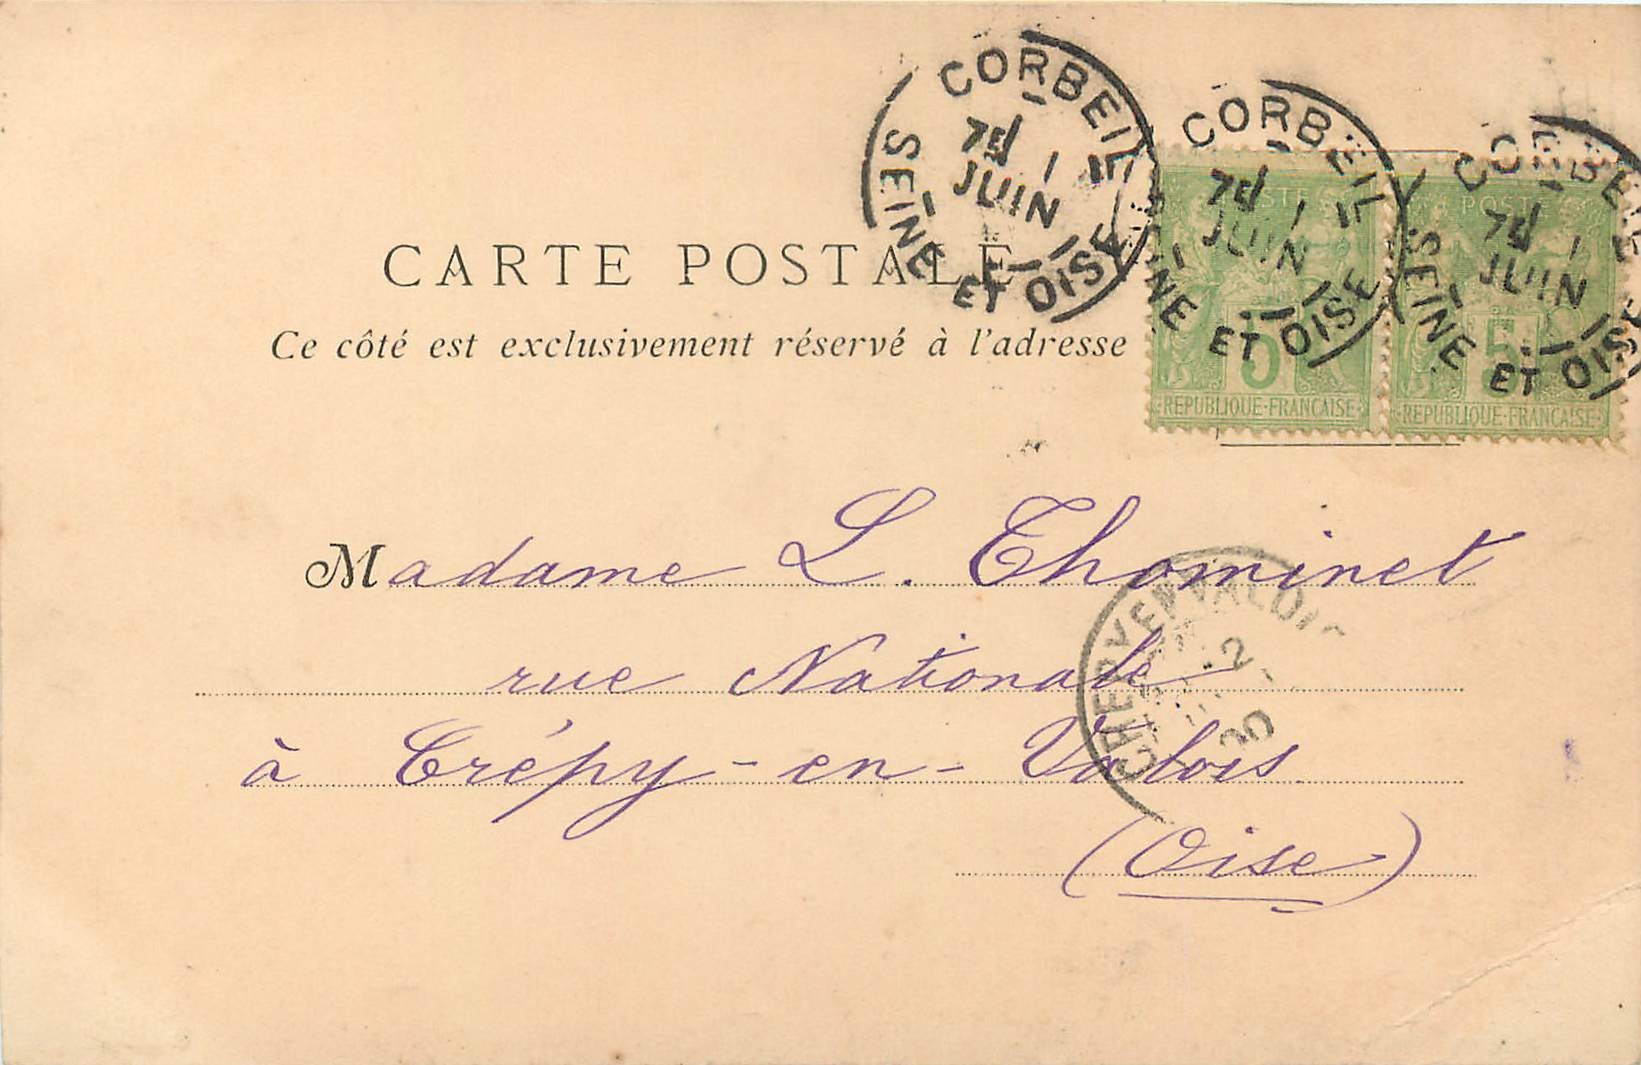 CORBEIL
7E 1
JUIN
SEINE ET OISE
CORBEIL
7E 1
JUIN
SEINE ET OISE
CORBEIL
7E 1
JUIN
SEINE ET OISE
POSTE
5
REPUBLIQUE-FRANÇAISE
POSTE
5
REPUBLIQUE-FRANÇAISE
CARTE POSTALE
Ce côté est exclusivement réservé à l'adresse
Madame L. Thominet
rue Nationale
à Crépy-en-Valois
(Oise)
2
00